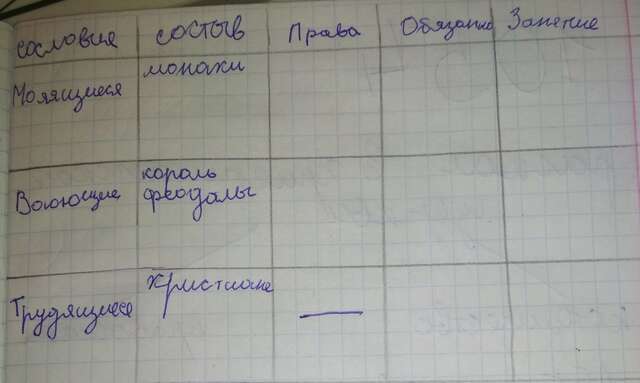 сословия состыв Права Обязанно Занятие
Молящиеся монахи
Воюющие король
феодалы
Трудящиеся христиане